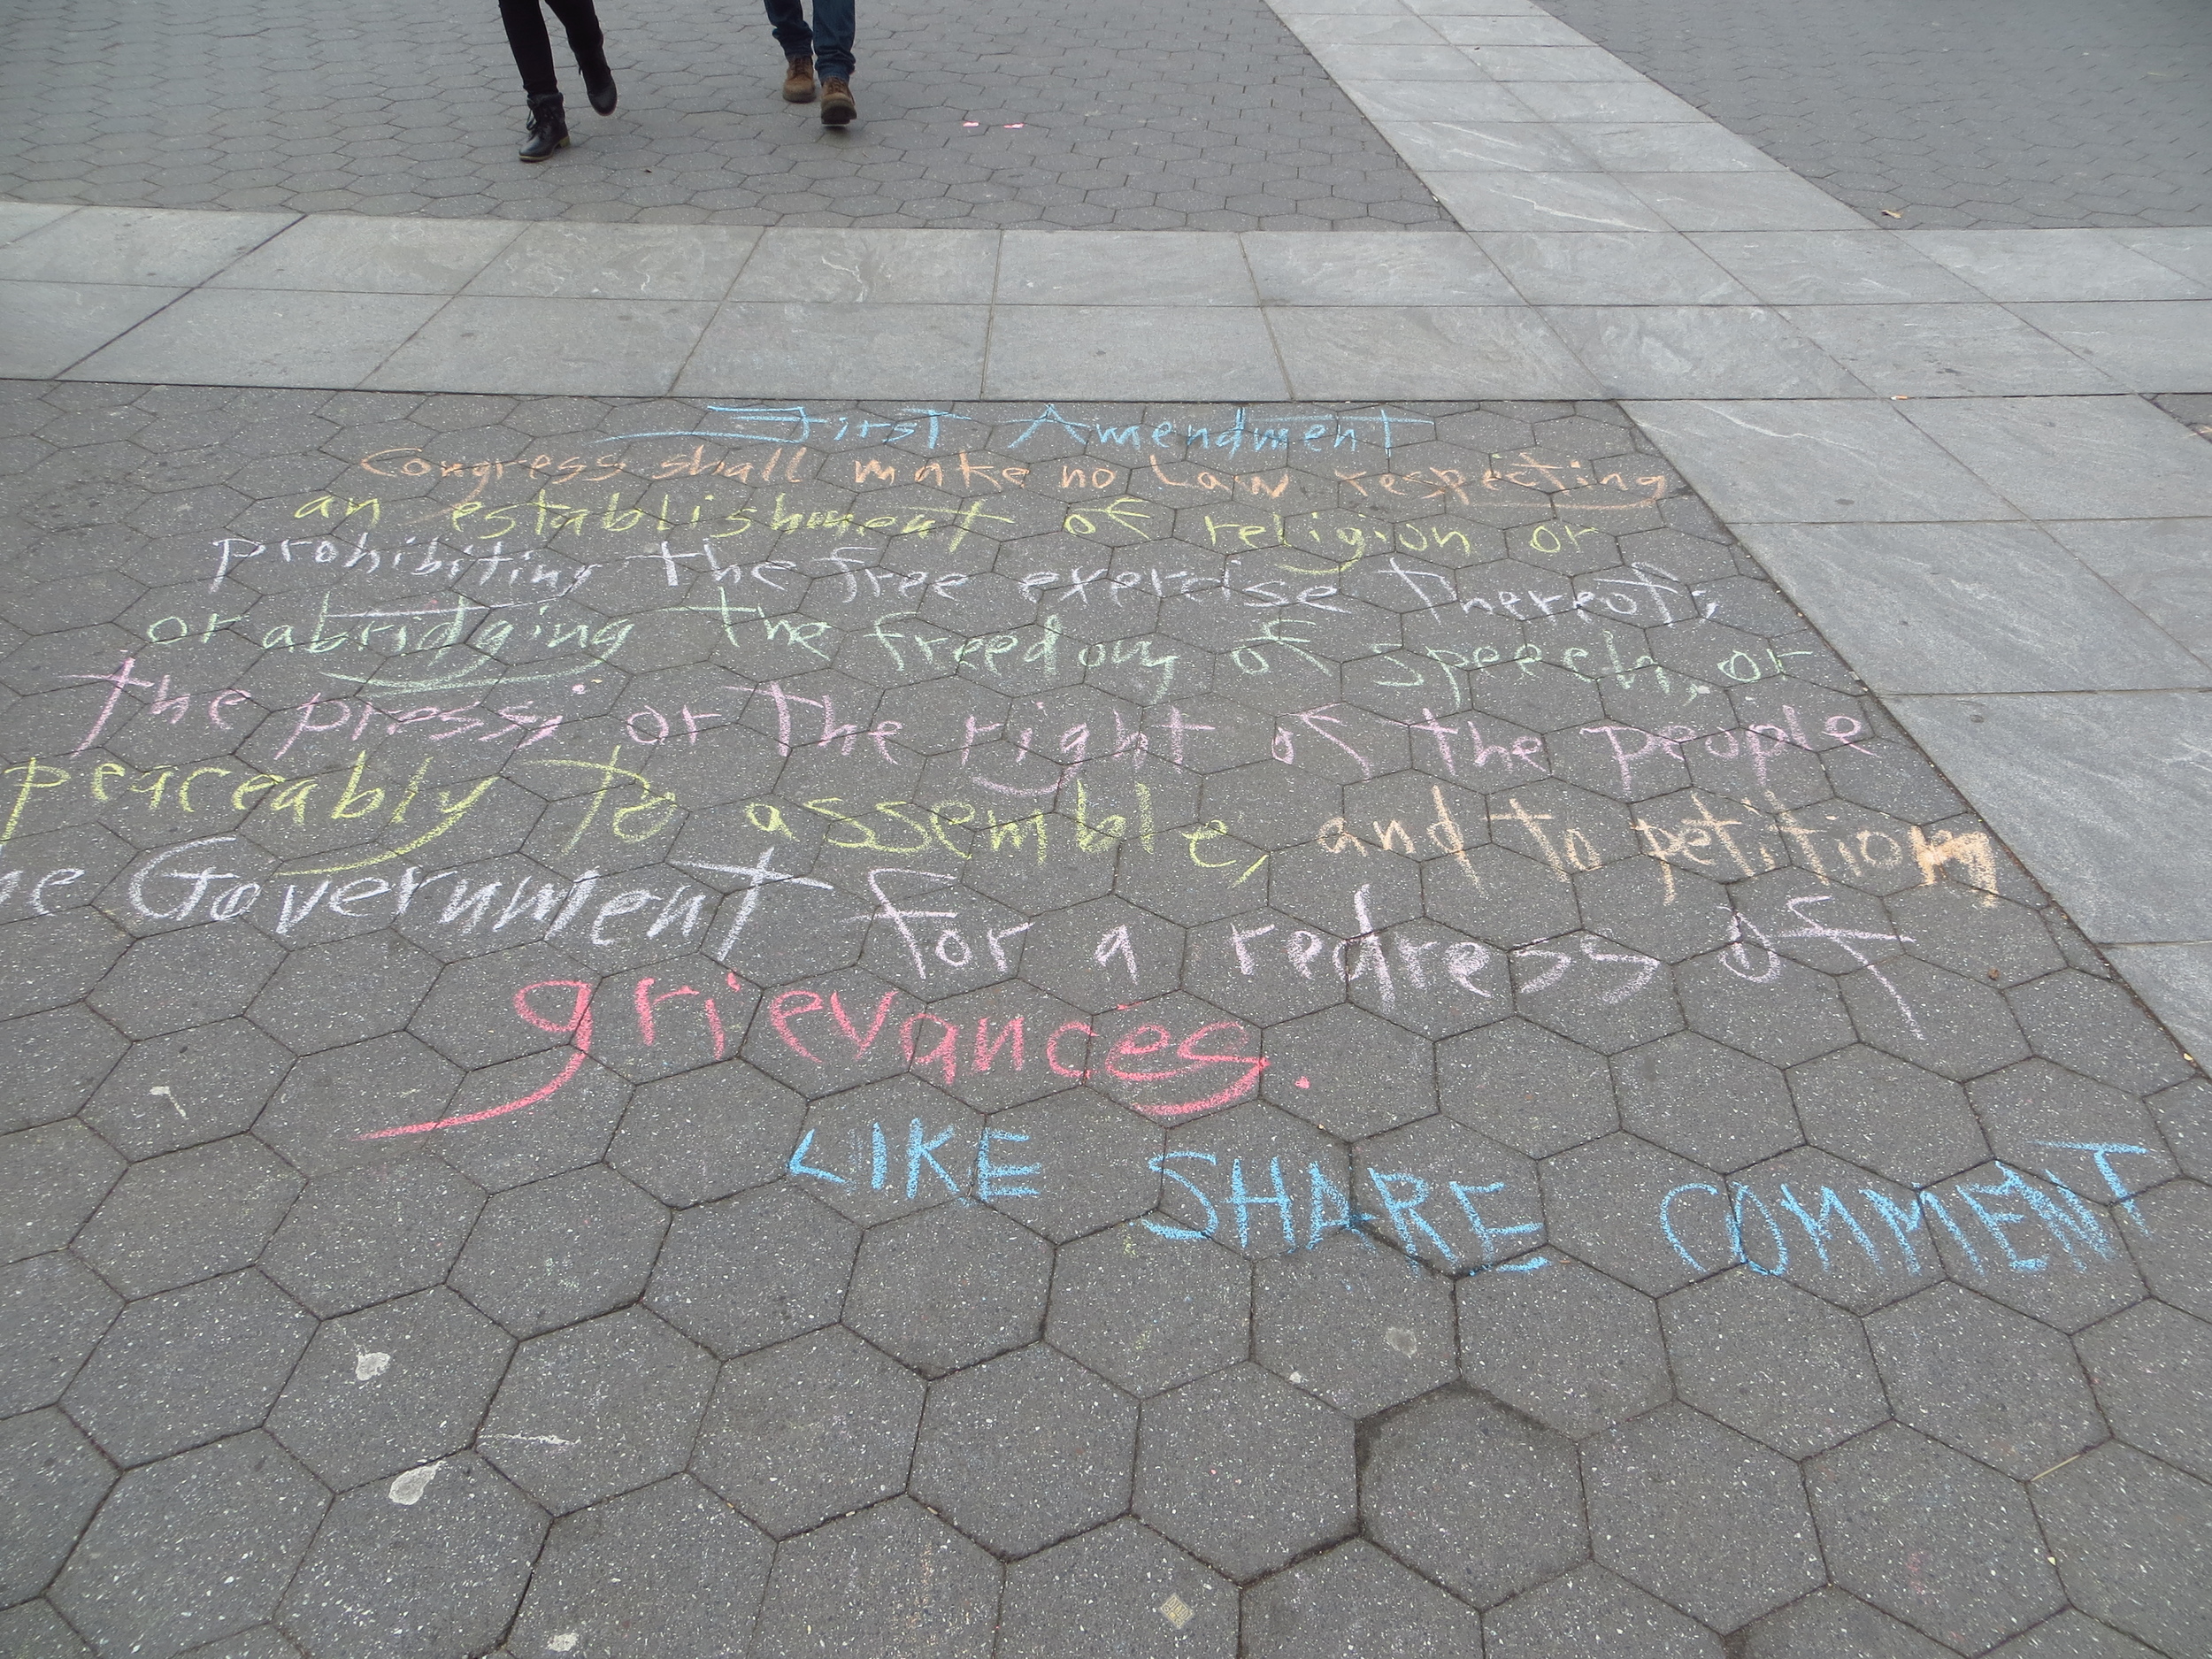 First Amendment
Congress shall make no law respecting
an establishment of religion or
prohibiting the free exercise thereof;
or abridging the freedom of speech, or
the press; or the right of the people
peaceably to assemble, and to petition
he Government for a redress of
grievances.
LIKE SHARE COMMENT